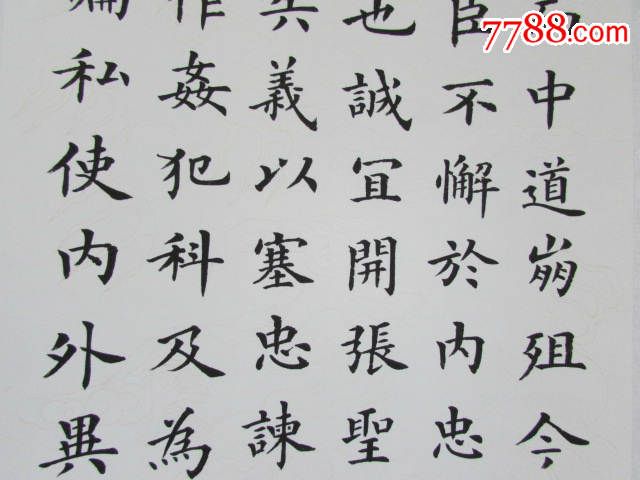 7788.com
中道崩殂今
臣不懈於内忠
也誠冝開張聖
義以塞忠諫
作姦犯科及為
偏私使内外異